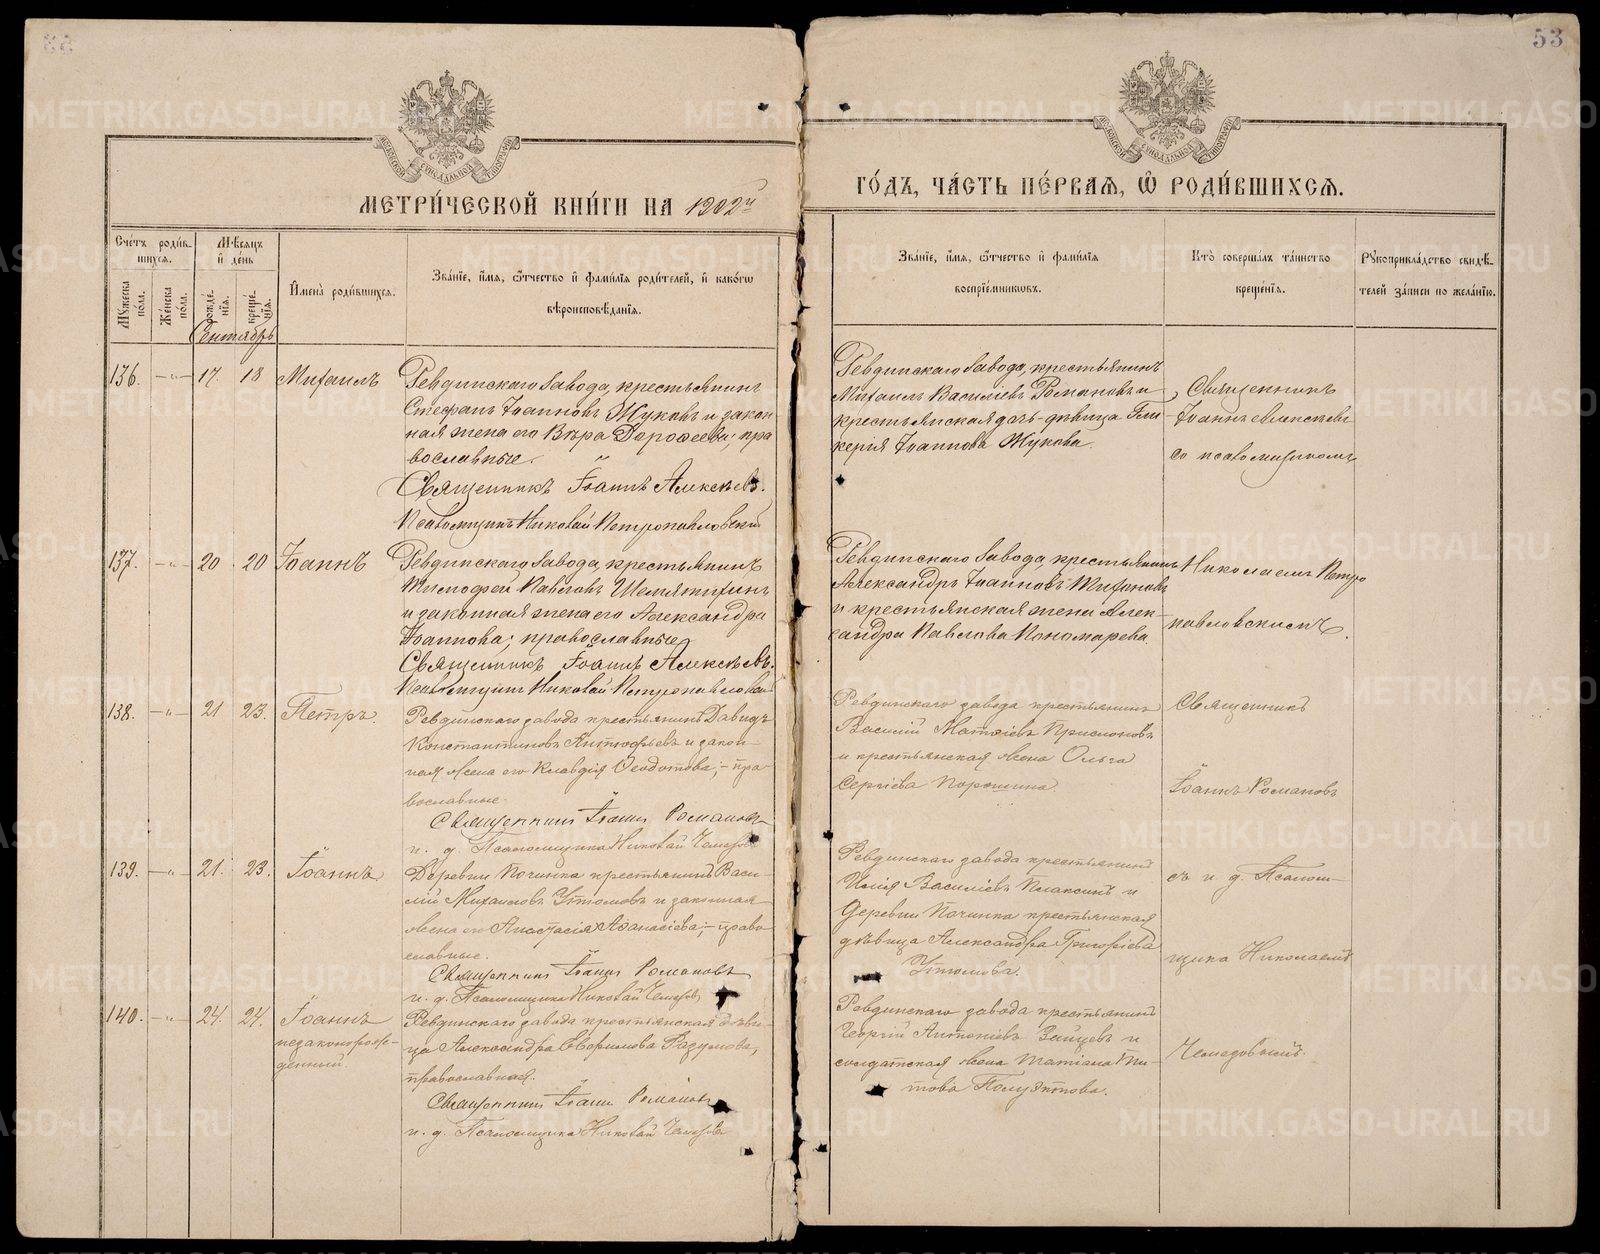 53
МЕТРИ́ЧЕСКОЙ КНИ́ГИ НА 1902й
ГО́ДЪ, ЧА́СТЬ ПЕ́РВАѦ, Ѿ РОДИ́ВШИХСѦ.
Сче́тъ роди́вшихся.
Мꙋ́жеска по́ла.
Же́нска по́ла.
Мѣ́сяцъ и҆ де́нь
рожде́нїя.
креще́нїя.
Сентябрь
И҆мена̀ роди́вшихся.
Зва́нїе, и҆́мя, ѻ҆́тчество и҆ фами́лїя роди́телей, и҆ како́гѡ
вѣроисповѣ́данїя.
Зва́нїе, и҆́мя, ѻ҆́тчество и҆ фами́лїя
воспрїе́мниковъ.
Кто̀ соверша́лъ та́инство
креще́нїя.
Рꙋкоприкла́дство свидѣ́-
телей за́писи по жела́нїю.
136. —"— 17. 18 Михаилъ
Ревдинскаго Завода, крестьянинъ
Стефанъ Іоанновъ Жуковъ и закон
ная жена его Вѣра Дорофеева; пра
вославные.
Священникъ Іоаннъ Алексѣевъ.
Псаломщикъ Николай Петропавловский
Ревдинскаго Завода, крестьянинъ
Михаилъ Василіевъ Романовъ и
крестьянская дочь-дѣвица Гли
керія Іоаннова Жукова.
Священникъ
Іоаннъ Алексѣевъ
со псаломщикомъ
137. —"— 20 20 Іоаннъ
Ревдинскаго Завода, крестьянинъ
Тимофей Павловъ Шемятихинъ
и законная жена его Александра
Іоаннова; православные
Священникъ Іоаннъ Алексѣевъ.
Псаломщикъ Николай Петропавловский
Ревдинскаго Завода, крестьянинъ
Александръ Іоанновъ
и крестьянская жена Алек-
сандра Павлова Пономарева
Николаемъ Петро
павловскимъ.
138. —"— 21 23. Петръ.
Ревдинскаго завода крестьянинъ Давидъ
Константиновъ и закон-
ная жена его Клавдія Ѳеодотова; - пра-
вославные.
Священникъ Іоаннъ Романовъ
и. д. Псаломщика Николай
Ревдинскаго завода крестьянинъ
Василій Матвіевъ
и крестьянская жена Ольга
Сергіева Порошина.
Священникъ
Іоаннъ Романовъ
139. —"— 21. 23. Іоаннъ
Деревни Починка крестьянинъ Васи-
лій Михаиловъ Утюмовъ и законная
жена его Анастасія Аѳанасіева; - право
славные.
Священникъ Іоаннъ Романовъ
и. д. Псаломщика Николай
Ревдинскаго завода крестьянинъ
Илія Василіевъ Плаксинъ и
Деревни Починка крестьянская
дѣвица Александра Григоріева
Утюмова.
съ и. д. Псалом-
щика Николаемъ
140. —"— 24. 24. Іоаннъ
незаконорож-
денный
Ревдинскаго завода крестьянская дѣви-
ца Александра Евфимова
православная.
Священникъ Іоаннъ Романовъ
и. д. Псаломщика Николай
Ревдинскаго завода крестьянинъ
Георгій Антоніевъ Зайцевъ и
солдатская жена Татіана Ти-
това Полуэктова.
METRIKI.GASO-URAL.RU